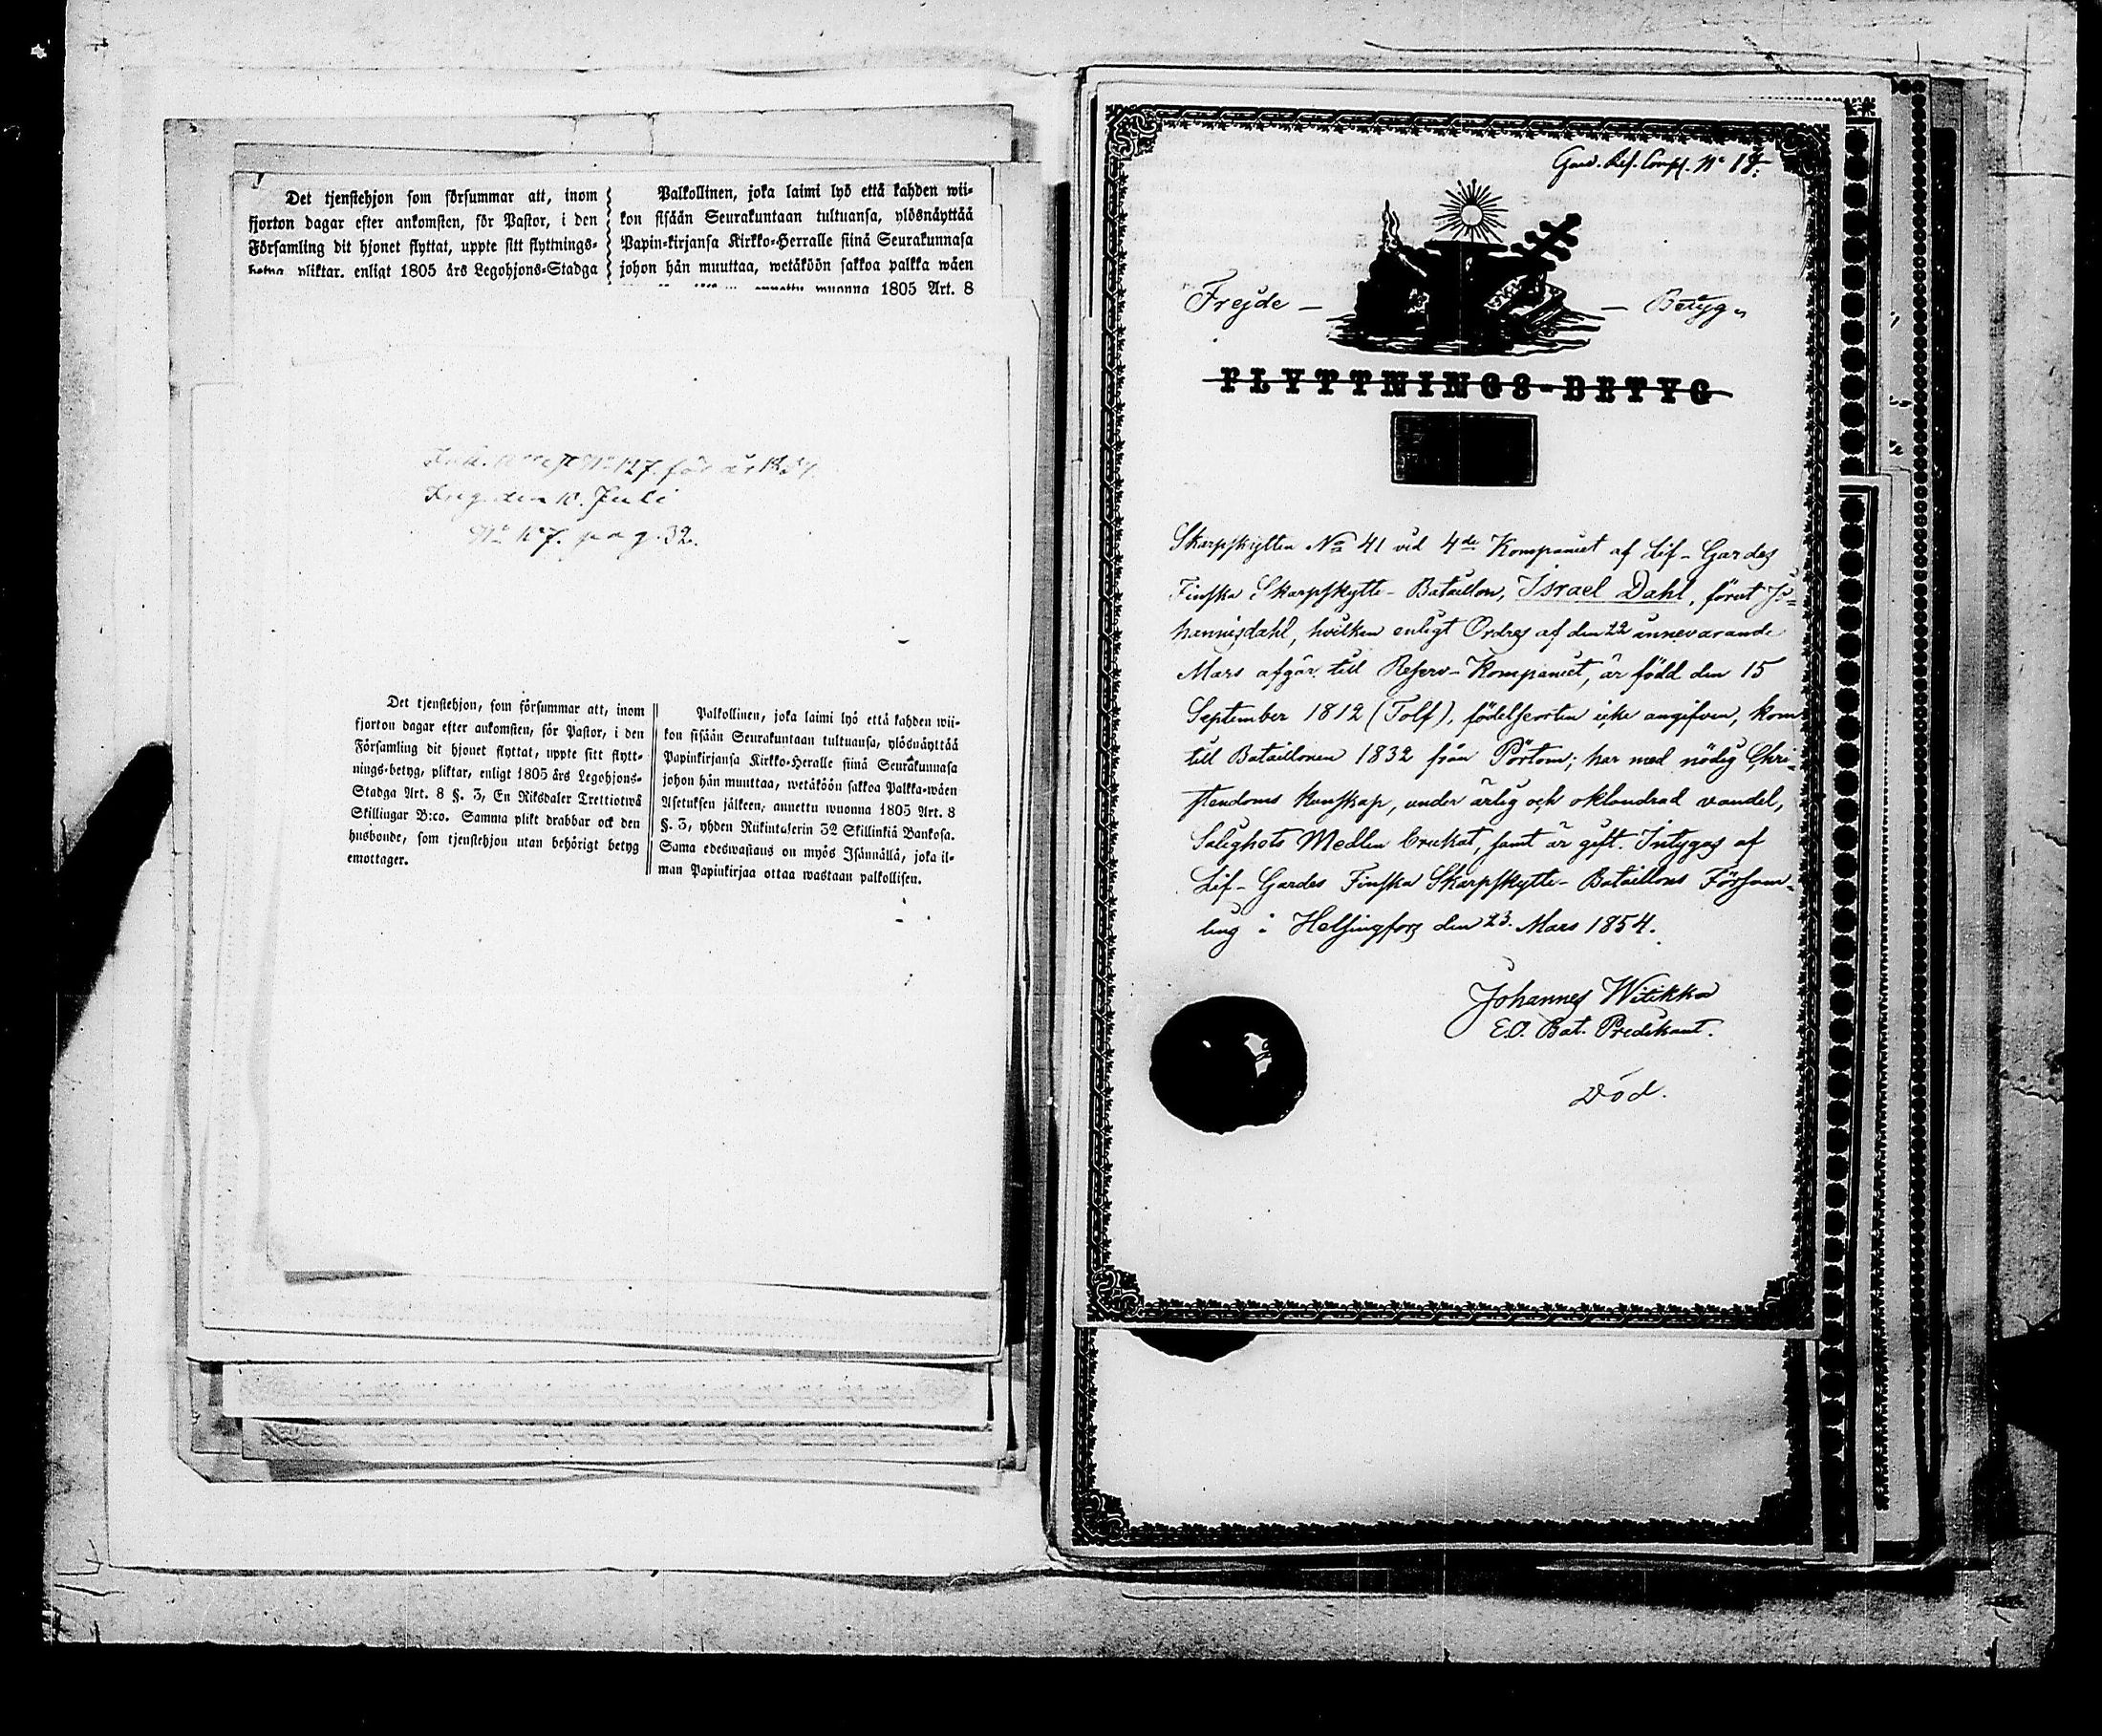 Det tjenstehjon som försummar att, inom
fjorton dagar efter ankomsten, för Pastor, i den
Församling dit hjonet flyttat, uppte sitt flyttnings-
betyg pliktar, enligt 1805 års Legohjons-Stadga
Palkollinen, joka laimi lyö että kahden wii-
kon sisään Seurakuntaan tultuansa, ylösnäyttää
Papin-kirjansa Kirkko-Herralle siinä Seurakunnasa
johon hän muuttaa, wetäköön sakkoa palkka wäen
annettu wuonna 1805 Art. 8
No 127. för år
den 10. Juli
No 107. pag. 32.
Det tjenstehjon, som försummar att, inom
fjorton dagar efter ankomsten, för Pastor, i den
Församling dit hjonet flyttat, uppte sitt flytt-
nings-betyg, pliktar, enligt 1805 års Legohjons-
Stadga Art. 8 §. 3, En Riksdaler Trettiotwå
Skillingar B:co. Samma plikt drabbar ock den
husbonde, som tjenstehjon utan behörigt betyg
emottager.
Palkollinen, joka laimi lyö että kahden wii-
kon sisään Seurakuntaan tultuansa, ylösnäyttää
Papinkirjansa Kirkko-Heralle siinä Seurakunnasa
johon hän muuttaa, wetäköön sakkoa Palkka-wäen
Asetuksen jälkeen, annettu wuonna 1805 Art. 8
§. 3, yhden Riikintalerin 32 Skillinkiä Bankosa.
Sama edeswastaus on myös Isännällä, joka il-
man Papinkirjaa ottaa wastaan palkollisen.
Gard. Res. Comp. No 17.
Frejde - - Betyg
FLYTTNINGS-BETYG
Skarpskytten No 41 vid 4de Kompaniet af Lif-Gardes
Finska Skarpskytte-Bataillon, Israel Dahl, förut Jo-
hannisdahl, hvilken enligt Ordres af den 22 innevarande
Mars afgår till Reserv-Kompaniet, är född den 15
September 1812 (Tolf), födelseorten icke angifven, kom
till Bataillonen 1832 från Pörtom; har med nödig Chri-
stendoms kunskap, under ärlig och oklandrad vandel,
Salighets Medlen brukat, samt är gift. Intygas af
Lif-Gardes Finska Skarpskytte-Bataillons Försam-
ling i Helsingfors den 23. Mars 1854.
Johannes Witikka
E.O. Bat. Predikant.
Död.